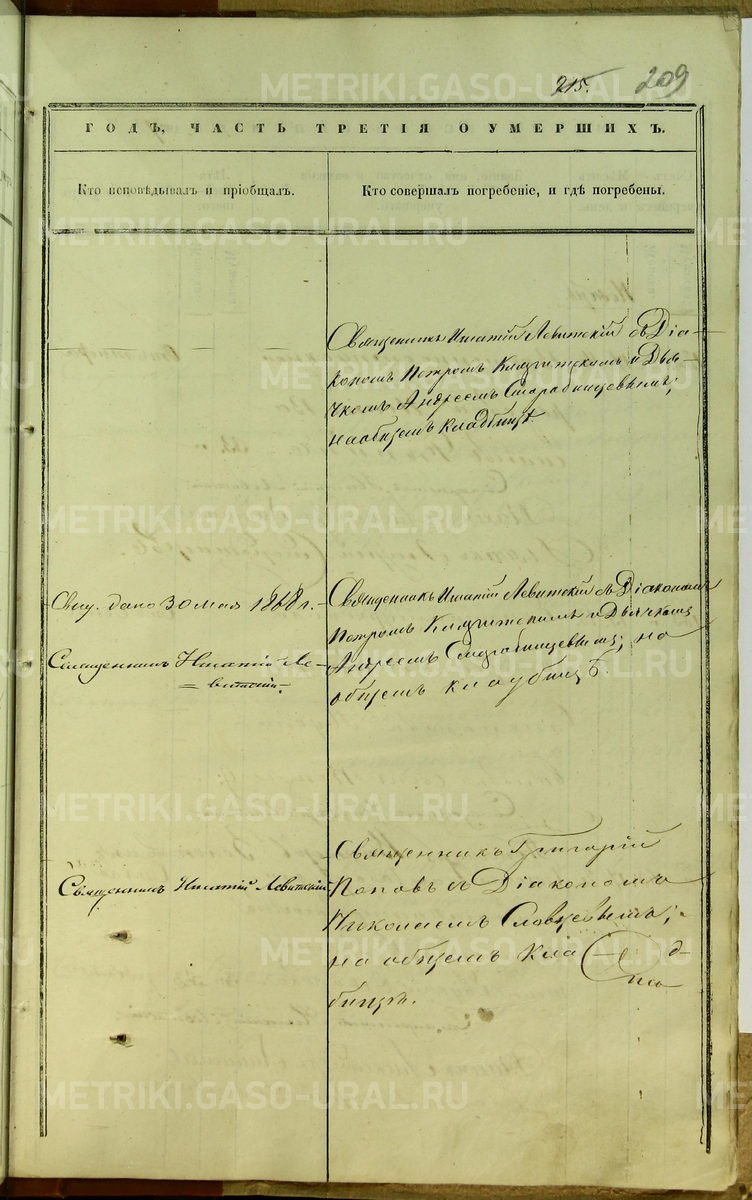 215.
209
ГОДЪ, ЧАСТЬ ТРЕТІЯ О УМЕРШИХЪ.
Кто исповѣдывалъ и пріобщалъ.
Кто совершалъ погребеніе, и гдѣ погребены.
Священникъ Игнатій Левитскій съ Діа-
кономъ Петромъ Княгитскимъ и Дья-
чкомъ Андреемъ
на общемъ кладбищѣ.
Свид. дано 30 мая 1868 г.
Священникъ Игнатій Ле-
витскій.
Священникъ Игнатій Левитскій съ Діакономъ
Петромъ и Дьячкомъ
Андреемъ на
общемъ кладбищѣ.
Священникъ Игнатій Левитскій
Священникъ Григорій
Поповъ съ Діакономъ
Николаемъ Словцевымъ;
на общемъ клад-
бищѣ.
METRIKI.GASO-URAL.RU